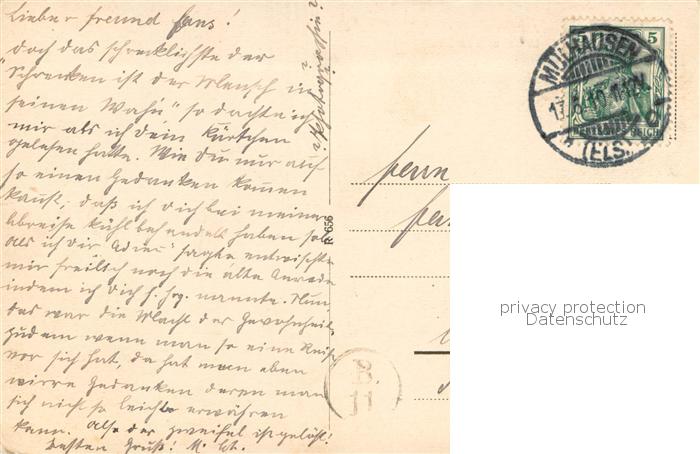 Lieber Freund Hans!
doch das schrecklichste der
"Schrecken ist der Mensch in
seinem Wahn" so dachte ich
mir als ich dein Kärtchen
gelesen hatte. Wie du nur auf
so einen Gedanken kommen
kannst, daß ich dich bei meiner
Abreise kühl behandelt haben soll
Als ich dir "Adieu" sagte entwischte
mir freilich noch die alte Anrede
indem ich dich H. nannte. Nun
das war die Macht der Gewohnheit
zudem wenn man so eine Reise
vor sich hat, da hat man eben
wirre Gedanken deren man
sich nicht so leicht erwähren
kann. Also der Zweifel ist gelöst!
Besten Gruß! M. Sch.
R 656
Herrn
MÜLHAUSEN
(ELS.)
5 5
DEUTSCHES REICH
B.
11
privacy protection
Datenschutz